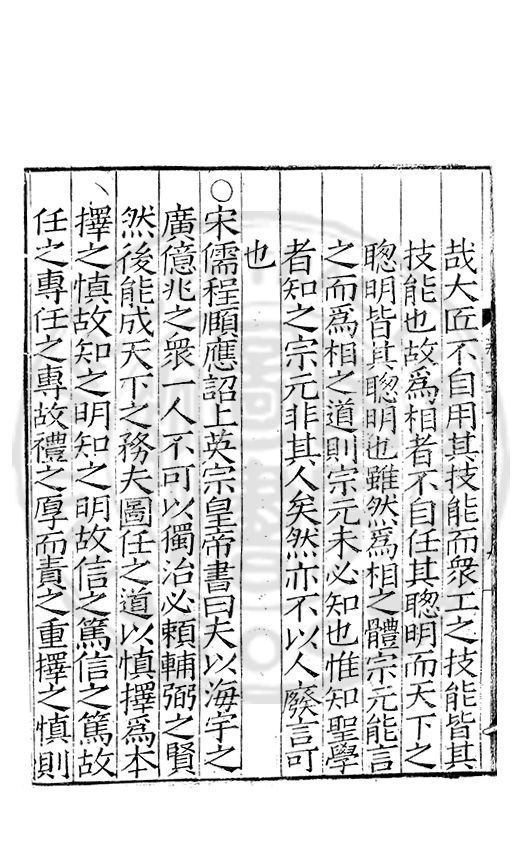 哉大匠不自用其技能而衆工之技能皆其
技能也故爲相者不自任其聦明而天下之
聦明皆其聦明也雖然爲相之體宗元能言
之而爲相之道則宗元未必知也惟知聖學
者知之宗元非其人矣然亦不以人廢言可
也
○宋儒程頤應詔上英宗皇帝書曰夫以海宇之
廣億兆之衆一人不可以獨治必頼輔弼之賢
然後能成天下之務夫圖任之道以慎擇爲本
擇之慎故知之明知之明故信之篤信之篤故
任之專任之專故禮之厚而責之重擇之慎則